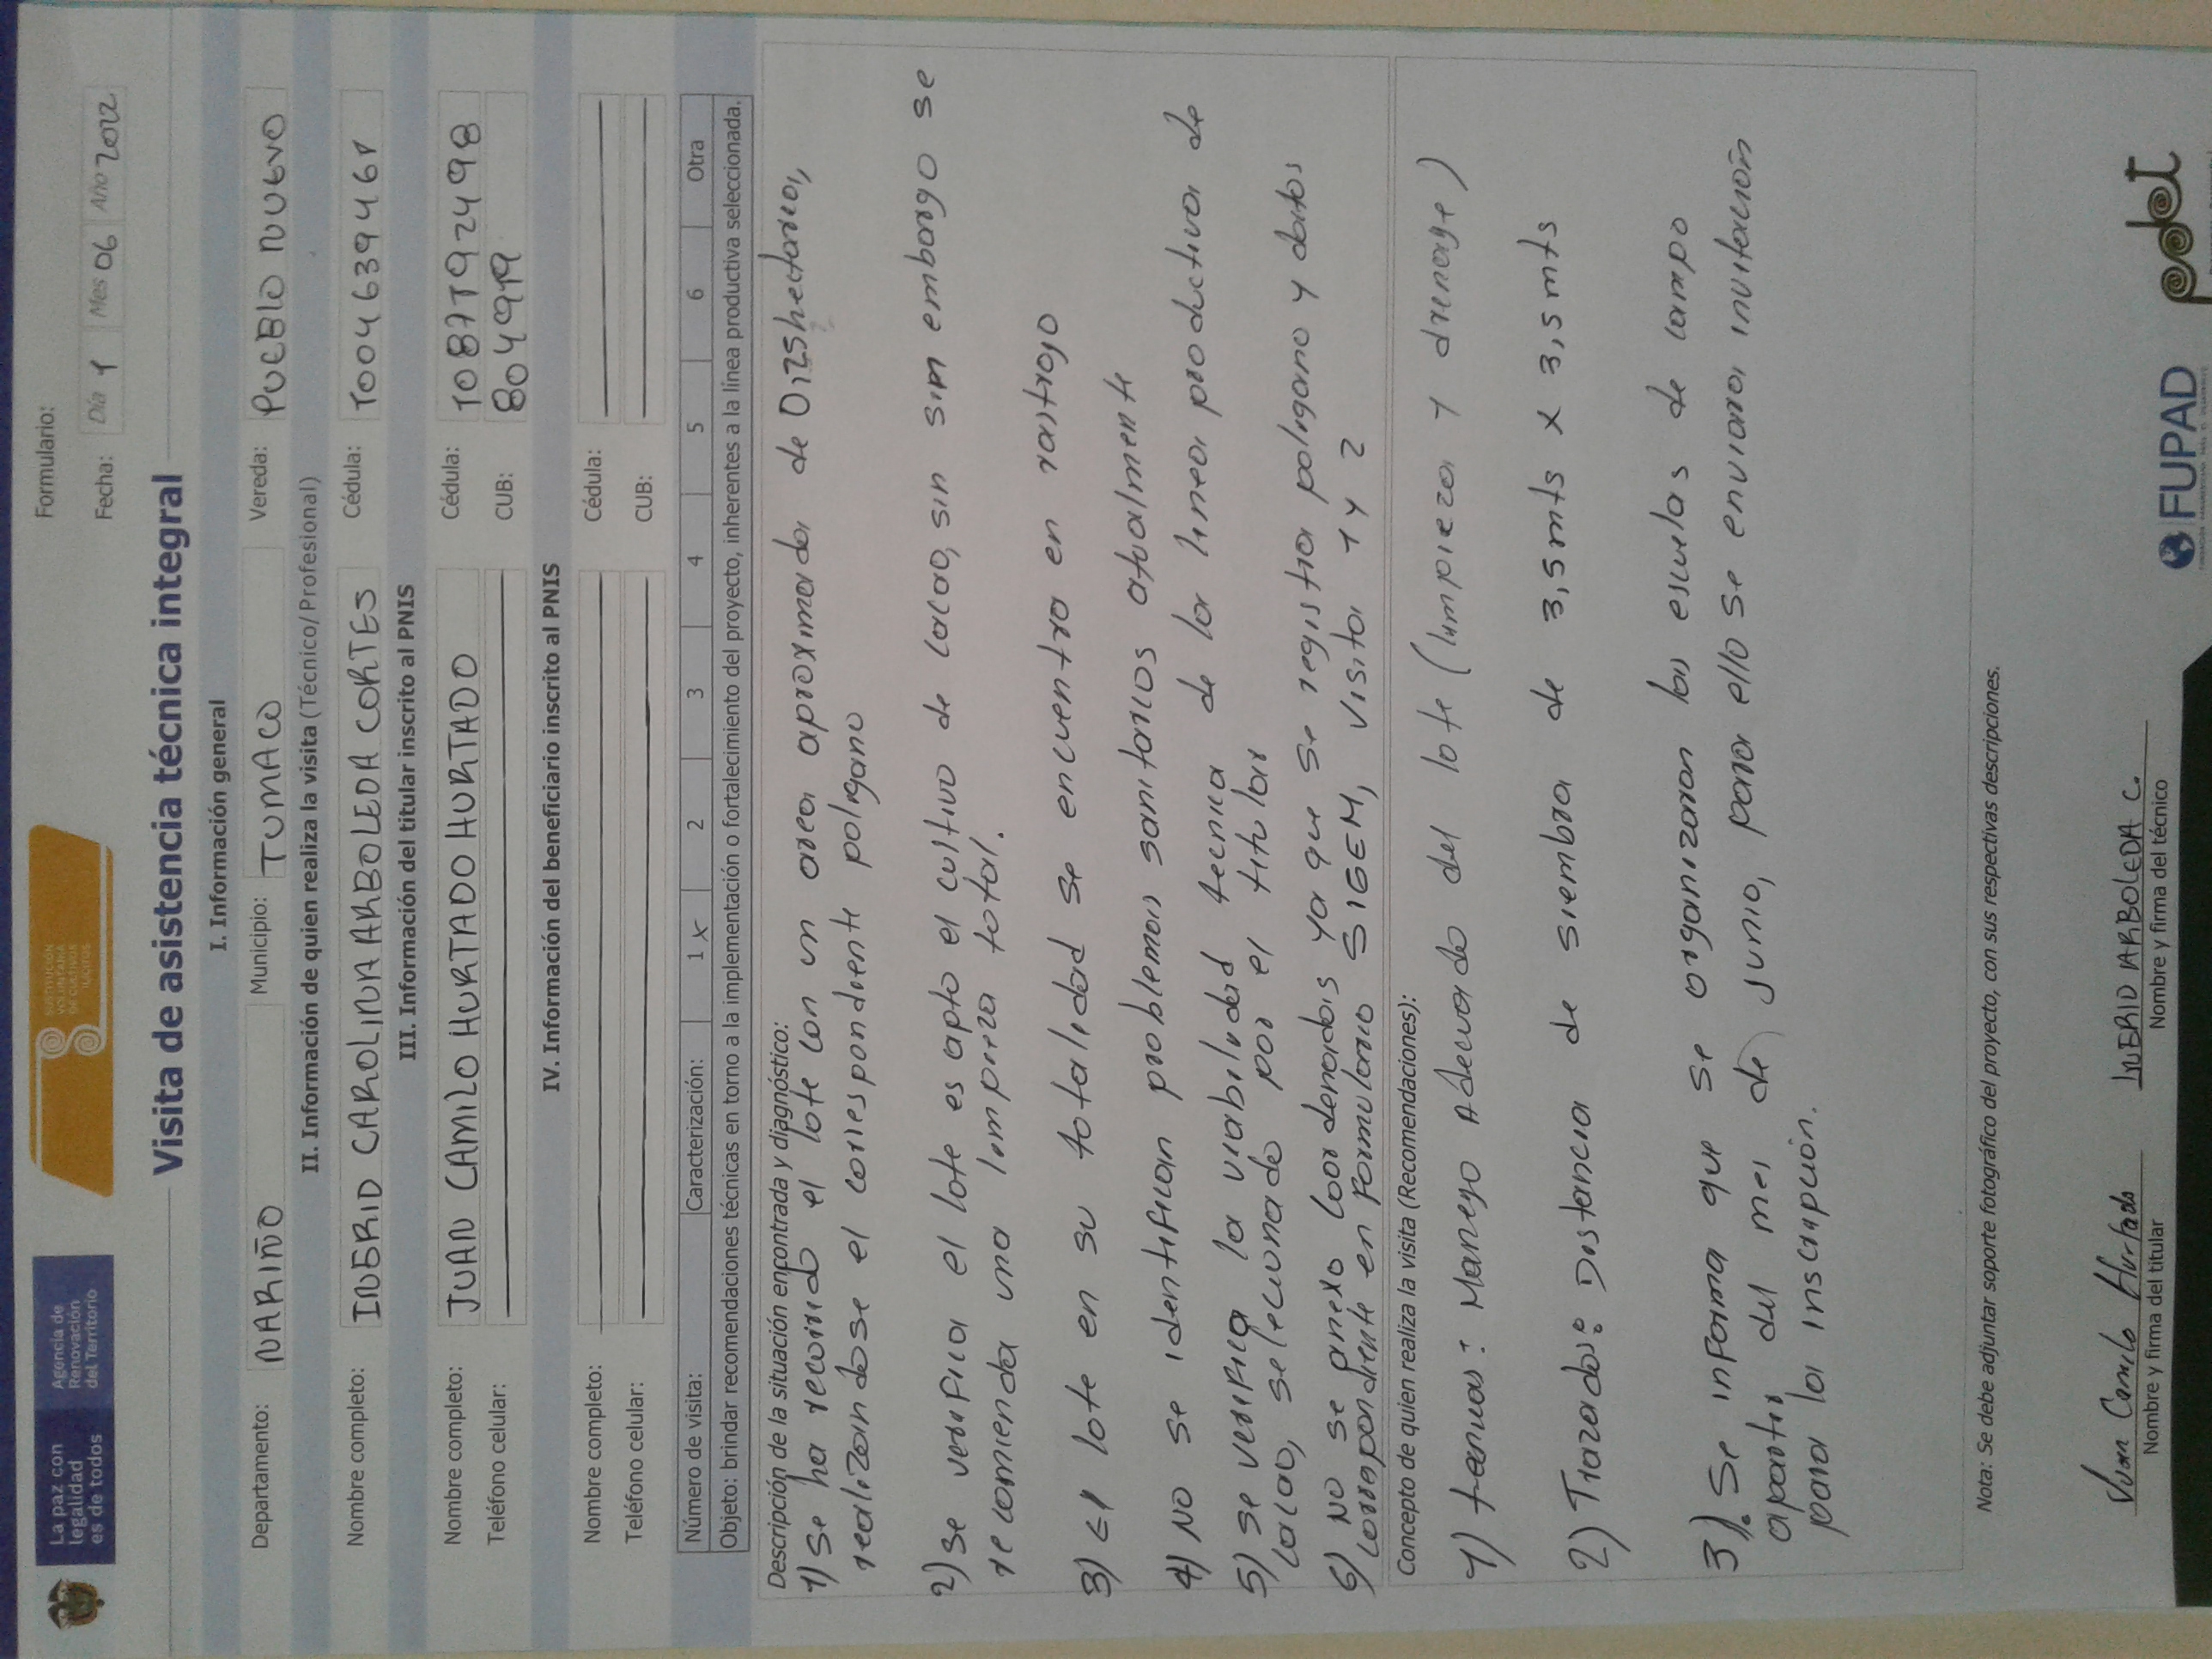 La paz con
legalidad
es de todos
Agencia de
Renovación
del Territorio
SUSTITUCIÓN
VOLUNTARIA
DE CULTIVOS
ILÍCITOS
Formulario:
Fecha: Día 1 Mes 06 Año 2022
Visita de asistencia técnica integral
I. Información general
Departamento: NARIÑO Municipio: TUMACO Vereda: PUEBLO NUEVO
II. Información de quien realiza la visita (Técnico/ Profesional)
Nombre completo: INGRID CAROLINA ARBOLEDA CORTES Cédula: 
III. Información del titular inscrito al PNIS
Nombre completo: JUAN CAMILO HURTADO HURTADO Cédula: 1087792498
Teléfono celular: CUB: 
IV. Información del beneficiario inscrito al PNIS
Nombre completo: Cédula:
Teléfono celular: CUB:
Número de visita: Caracterización: 1 x 2 3 4 5 6 Otra
Objeto: brindar recomendaciones técnicas en torno a la implementación o fortalecimiento del proyecto, inherentes a la línea productiva seleccionada.
Descripción de la situación encontrada y diagnóstico:
1) Se ha recorrido el lote con un area aproximada de 0,25 hectarea,
realizandose el correspondiente poligano
2) se verifica el lote es apto el cultivo de cacao, sin sim embargo se
recomienda una limpieza total.
3) El lote en su totalidad se encuentra en rastrojo
4) No se identifican problemas sanitarios atualmente
5) se verifica la viabilidad tecnica de la linea productiva de
cacao, selecionado por el titular
6) No se anexo coordenadas ya que se registra poligano y datos
correspondiente en formulario SIGEM, visita 1 y 2
Concepto de quien realiza la visita (Recomendaciones):
1) tecnicas: Manejo Adecuado del lote (limpieza y drenage)
2) Trazados: Distancia de siembra de 3,5 mts x 3,5 mts
3). Se informa que se organizaran las escuelas de campo
apartir del mes de junio, para ello se enviara invitación
para la inscripción.
Nota: Se debe adjuntar soporte fotográfico del proyecto, con sus respectivas descripciones.
Juan Camilo Hurtado
Nombre y firma del titular
INGRID ARBOLEDA C.
Nombre y firma del técnico
FUPAD
pdet